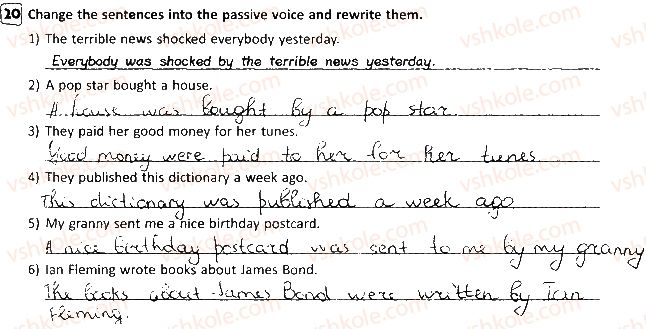 20 Change the sentences into the passive voice and rewrite them.
1) The terrible news shocked everybody yesterday.
Everybody was shocked by the terrible news yesterday.
2) A pop star bought a house.
A house was bought by a pop star.
3) They paid her good money for her tunes.
Good money were paid to her for her tunes
4) They published this dictionary a week ago.
This dictionary was published a week ago
5) My granny sent me a nice birthday postcard.
A nice birthday postcard was sent to me by my granny
6) Ian Fleming wrote books about James Bond.
The books about James Bond were written by Ian
Fleming.